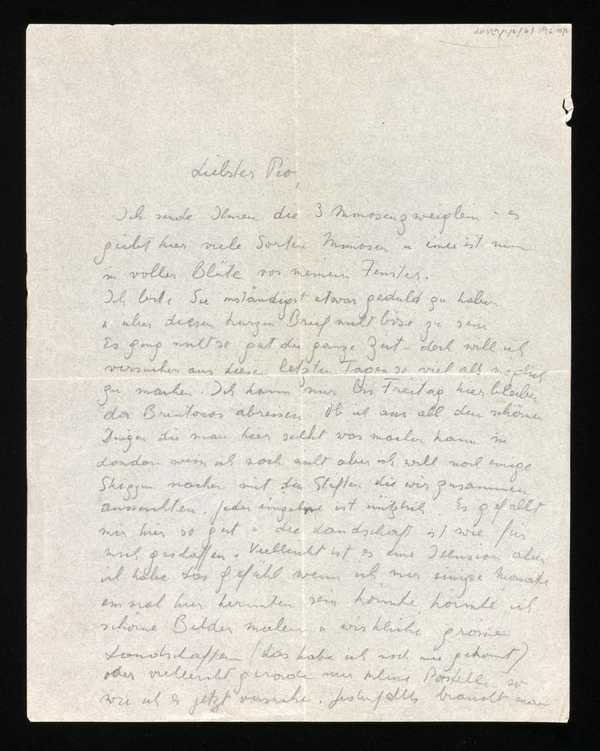 Liebster Pio,
Ich sende Ihnen die 3 Mimosenzweiglein - es
giebt hier viele Sorten Mimosen u eine ist nun
in voller Blüte vor meinem Fenster.
Ich bitte Sie inständigst etwas geduld zu haben
u über diesen kurzen Brief nicht böse zu sein
Es ging nicht so gut die ganze Zeit - doch will ich
versuchen aus diesen letzten Tagen so viel als möglich
zu machen. Ich kann nur bis Freitag hier bleiben
da abreisen. Ob ich aus all den schönen
Dingen die man hier sieht was machen kann in
London weiss ich noch nicht aber ich will noch einige
machen mit den Stiften die wir zusammen
aussuchten. jeder einzelne ist nützlich. Es gefällt
mir hier so gut u die Landschaft ist wie für
mich geschaffen. Vielleicht ist es eine Illusion aber
ich habe das gefühl wenn ich nur einige Monate
einmal hier herunten sein könnte könnte ich
schöne Bilder malen u wirkliche grosse
Landschaften (das habe ich noch nie gekonnt)
oder vielleicht gerade nur kleine Pastelle so
wie ich es jetzt versuche. Jedenfalls braucht man